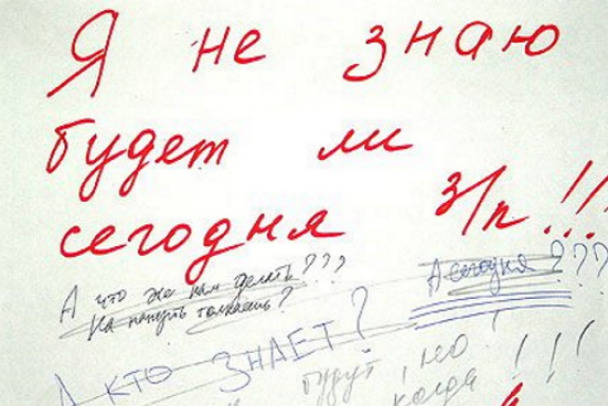 Я не знаю
будет ли
сегодня з/п!!!
А что же нам делать???
А сегодня???
На панель толкаешь?
А КТО ЗНАЕТ?
будут, но!
когда!!!